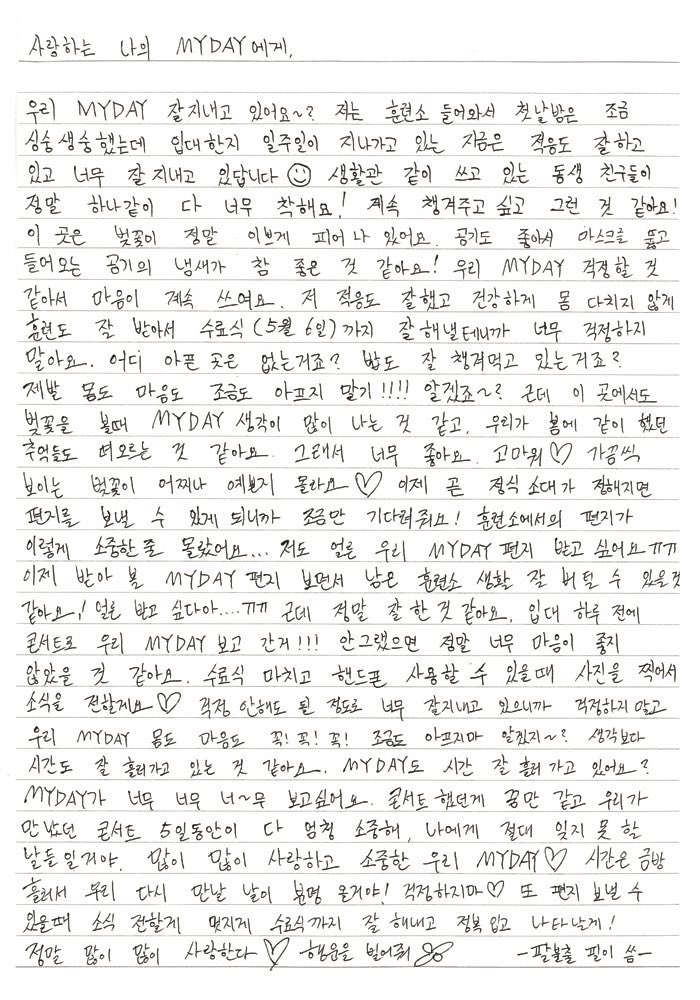 사랑하는 나의 MYDAY에게,
우리 MYDAY 잘지내고 있어요~? 저는 훈련소 들어와서 첫날밤은 조금
싱숭생숭했는데 입대한지 일주일이 지나가고 있는 지금은 적응도 잘하고
있고 너무 잘지내고 있답니다 ☺ 생활관 같이 쓰고 있는 동생 친구들이
정말 하나같이 다 너무 착해요! 계속 챙겨주고 싶고 그런 것 같아요!
이 곳은 벚꽃이 정말 이쁘게 피어나 있어요. 공기도 좋아서 마스크를 뚫고
들어오는 공기의 냄새가 참 좋은 것 같아요! 우리 MYDAY 걱정할 것
같아서 마음이 계속 쓰여요. 저 적응도 잘했고 건강하게 몸 다치지 않게
훈련도 잘 받아서 수료식 (5월 6일)까지 잘해낼테니까 너무 걱정하지
말아요. 어디 아픈 곳은 없는거죠? 밥도 잘 챙겨먹고 있는거죠?
제발 몸도 마음도 조금도 아프지 말기!!!! 알겠죠~? 근데 이 곳에서도
벚꽃을 볼때 MYDAY 생각이 많이 나는 것 같고, 우리가 봄에 같이 했던
추억들도 떠오르는 것 같아요. 그래서 너무 좋아요. 고마워♡ 가끔씩
보이는 벚꽃이 어찌나 예쁜지 몰라요♡ 이제 곧 정식 소대가 정해지면
편지를 보낼 수 있게 되니까 조금만 기다려줘요! 훈련소에서의 편지가
이렇게 소중한줄 몰랐어요... 저도 얼른 우리 MYDAY 편지 받고 싶어요ㅠㅠ
이제 받아 볼 MYDAY 편지 보면서 남은 훈련소 생활 잘 버틸 수 있을것
같아요! 얼른 받고 싶다아....ㅠㅠ 근데 정말 잘한것 같아요. 입대 하루 전에
콘서트로 우리 MYDAY 보고 간거!!! 안그랬으면 정말 너무 마음이 좋지
않았을 것 같아요. 수료식 마치고 핸드폰 사용할 수 있을때 사진을 찍어서
소식을 전할게요♡ 걱정 안해도 될 정도로 너무 잘지내고 있으니까 걱정하지 말고
우리 MYDAY 몸도 마음도 꼭! 꼭! 꼭! 조금도 아프지마 알겠지~? 생각보다
시간도 잘 흘러가고 있는 것 같아요. MYDAY도 시간 잘 흘러가고 있어요?
MYDAY가 너무 너무 너~무 보고싶어요. 콘서트 했던게 꿈만 같고 우리가
만났던 콘서트 5일동안이 다 엄청 소중해, 나에게 절대 잊지 못 할
날들일거야. 많이 많이 사랑하고 소중한 우리 MYDAY♡ 시간은 금방
흘러서 우리 다시 만날 날이 분명 올거야! 걱정하지마♡ 또 편지 보낼 수
있을때 소식 전할게 멋지게 수료식까지 잘 해내고 정복입고 나타날게!
정말 많이 많이 사랑한다♡ 행운을 빌어줘 -팔불출 필이 씀-